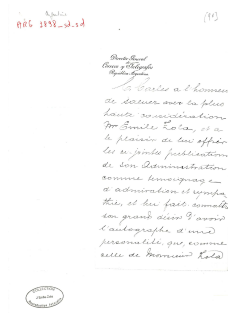 Argentine
[90]
ARG 1898_sd_sd
Director General
de
Correos y Telégrafos
República Argentina
Carles a l'honneur
de saluer avec la plus
haute considération
Mr Emile Zola, et a
le plaisir de lui offrir
les ci-jointes publications
de son Administration
comme temoignage
d'admiration et sympa-
thie, et lui fait connaître
son grand désir d'avoir
l'autographe d'une
personalité, que, comme
celle de Monsieur Zola